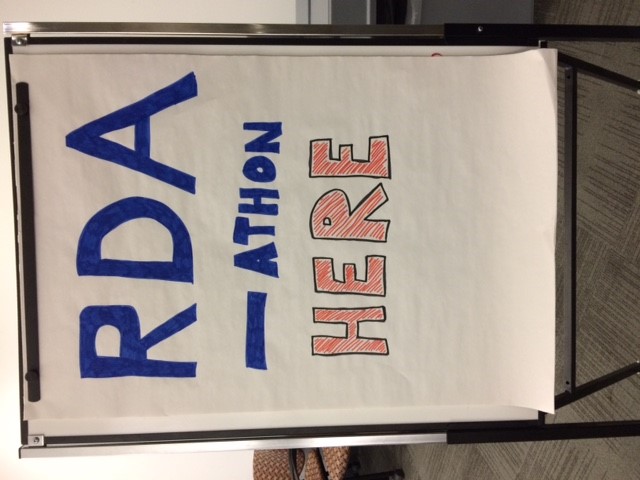 RDA
— ATHON
HERE